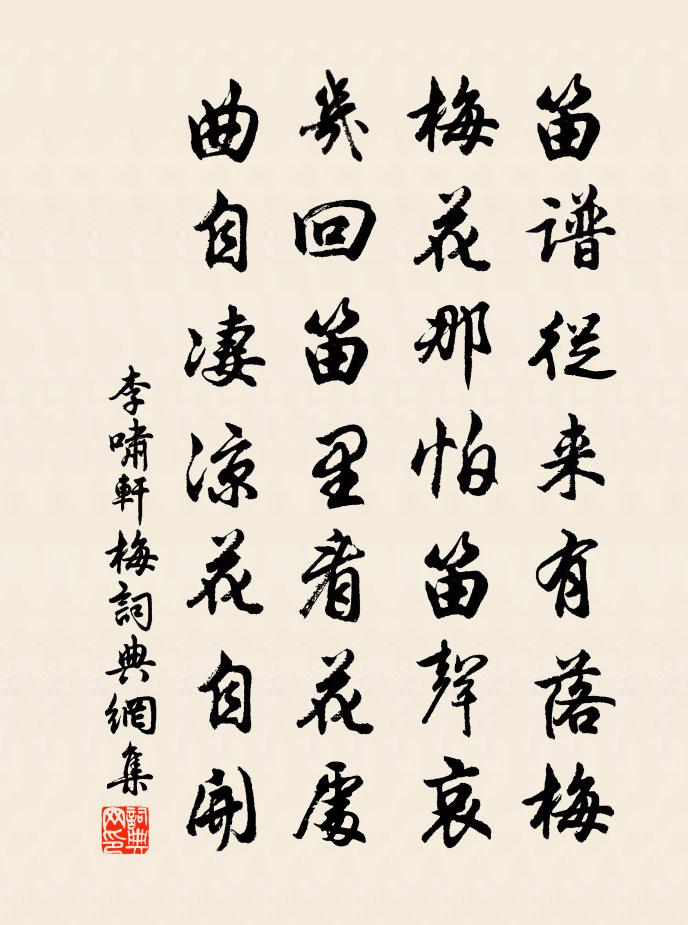 笛谱從来有落梅
梅花那怕笛聲哀
幾回笛里看花處
曲自凄凉花自開
李嘯軒梅詞典網集
詞典网印